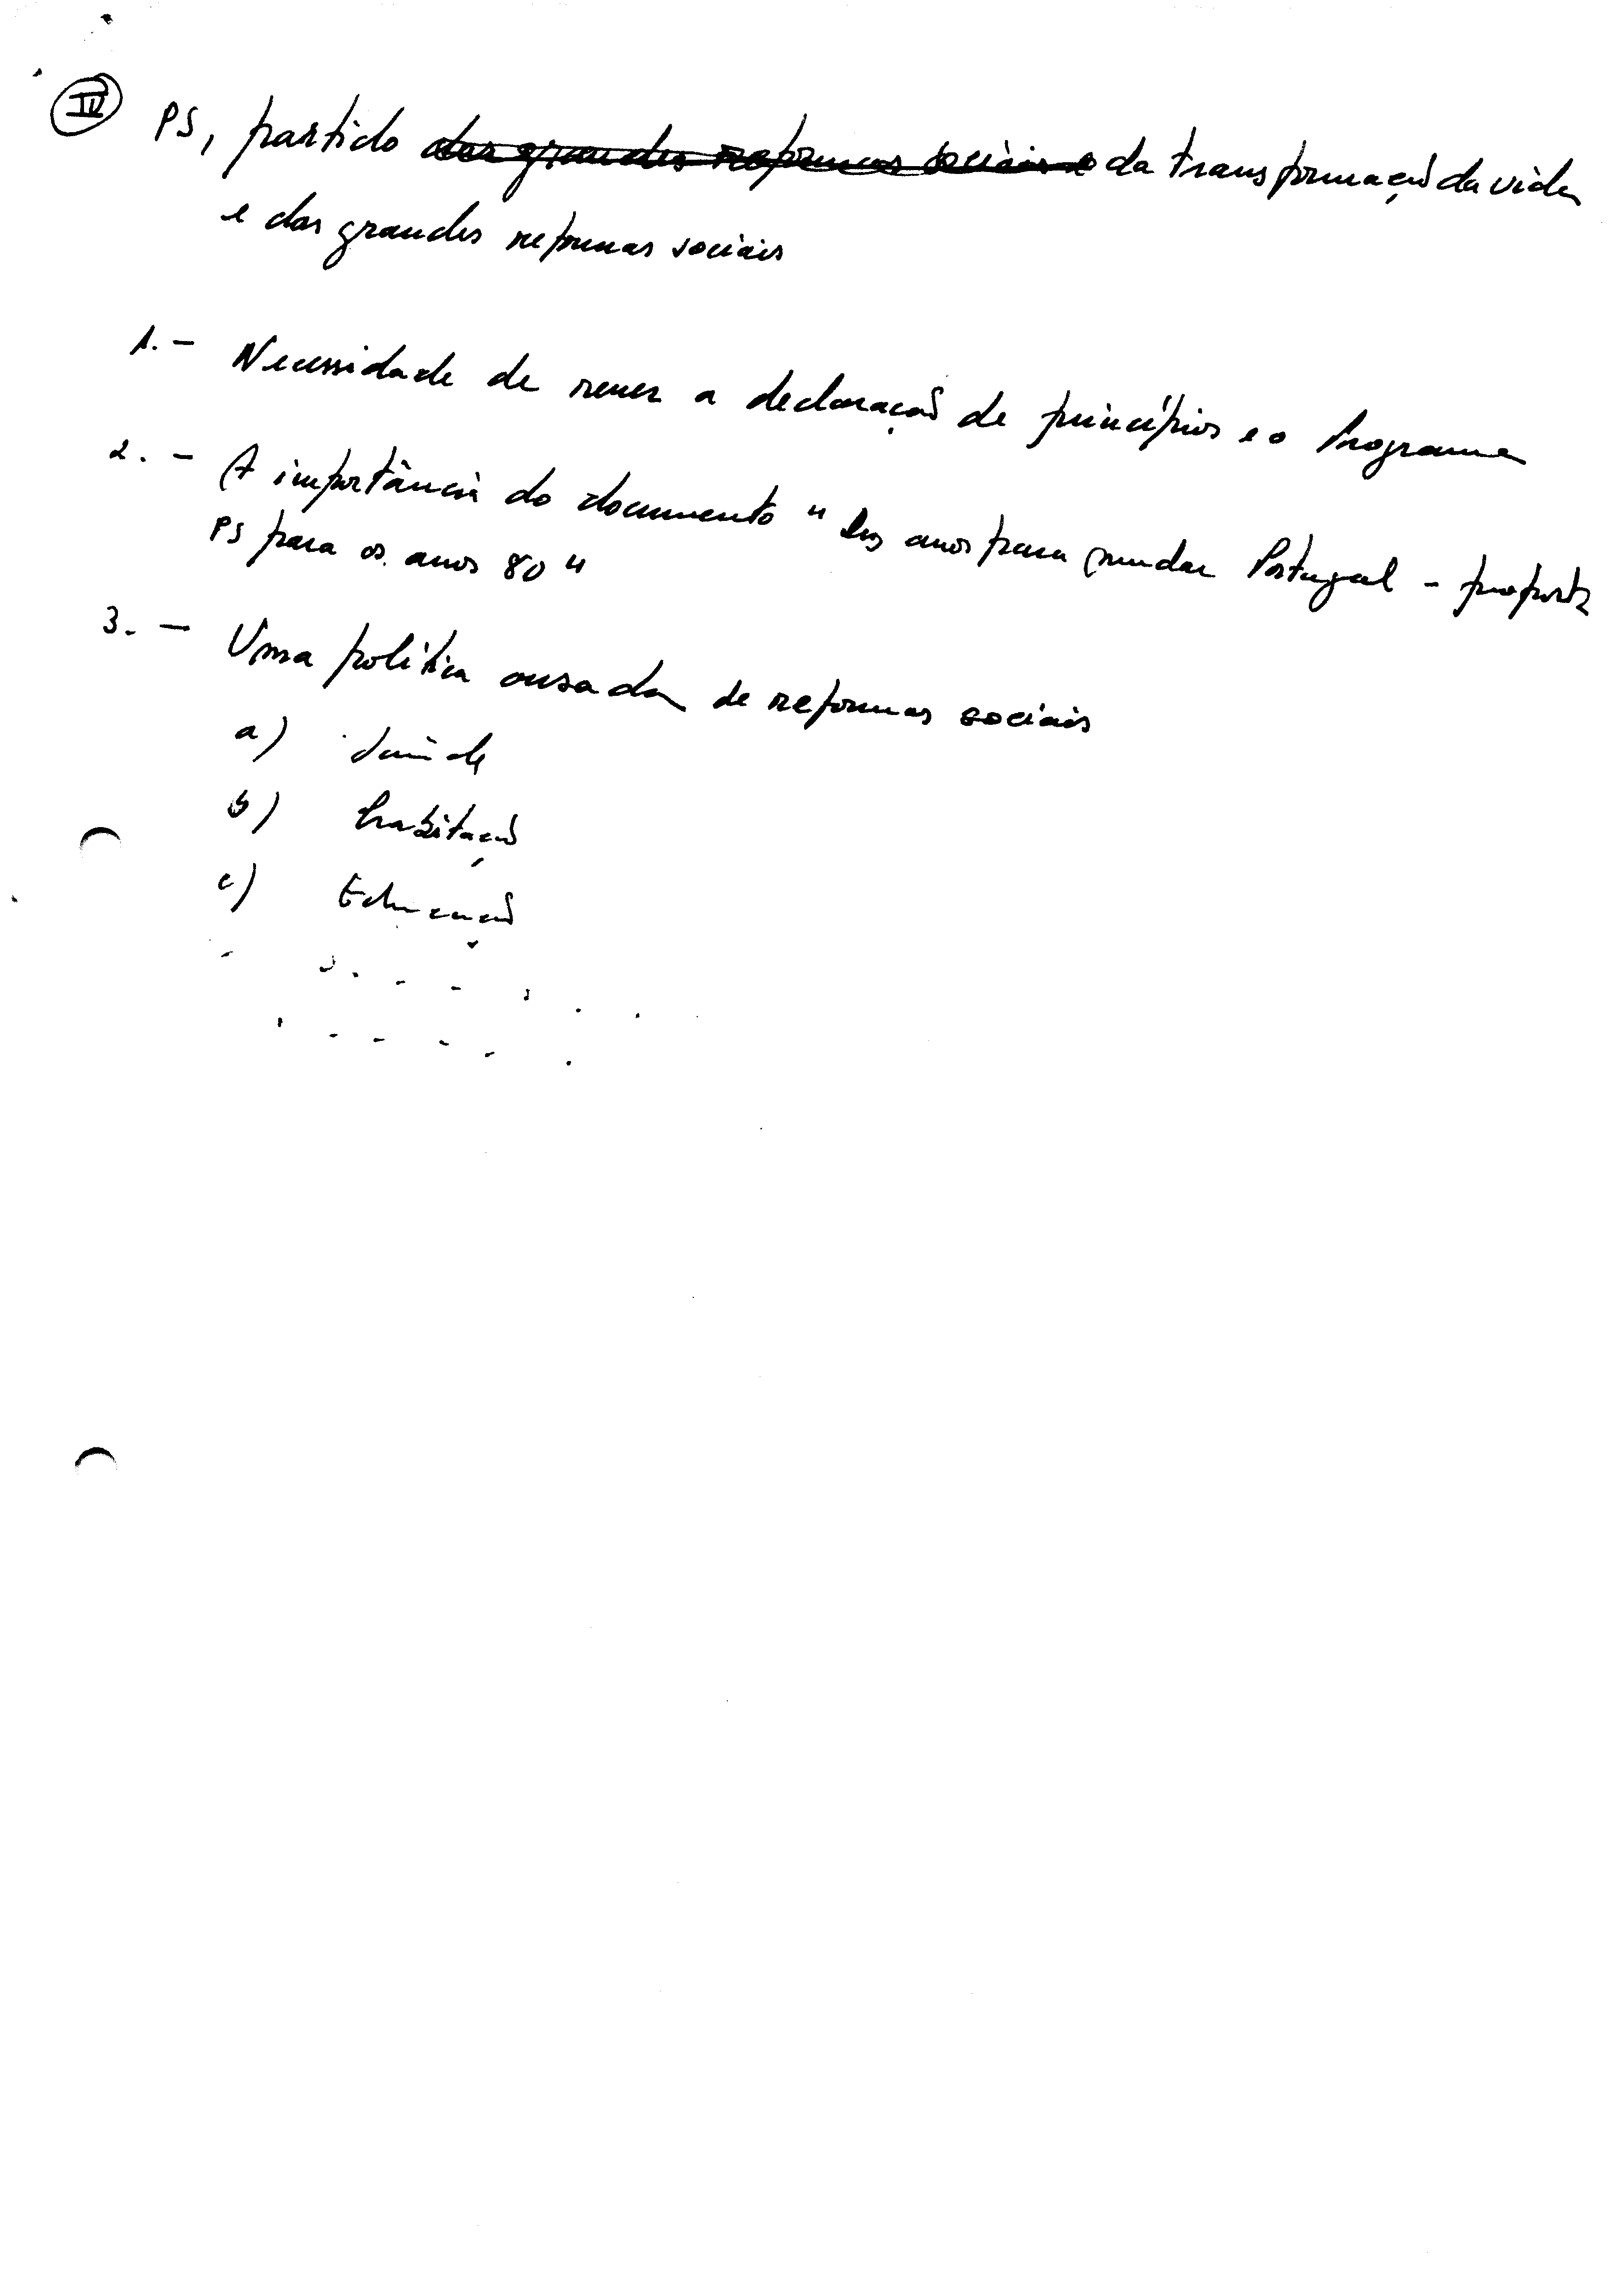 IV PS, partido das grandes reformas sociais e da transformação da vida
e das grandes reformas sociais
1. - Necessidade de rever a declaração de princípios e o Programa
2. - A importância do documento "Dez anos para mudar Portugal - proposta
PS para os anos 80"
3. - Uma política ousada de reformas sociais
a) Saúde
b) habitação
c) Educação